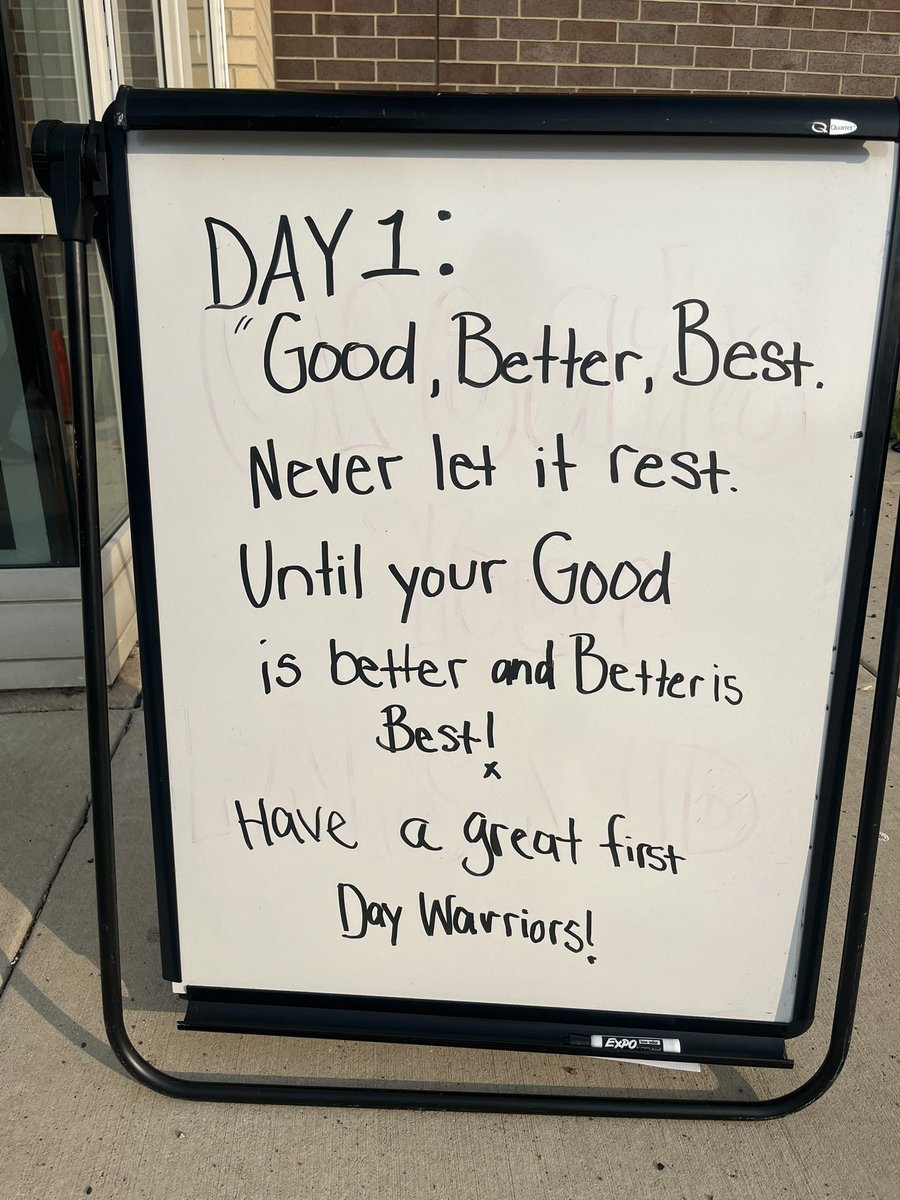 Quartet
DAY 1:
"Good, Better, Best.
Never let it rest.
Until your Good
is better and Better is
Best!
Have a great first
Day Warriors!
EXPO